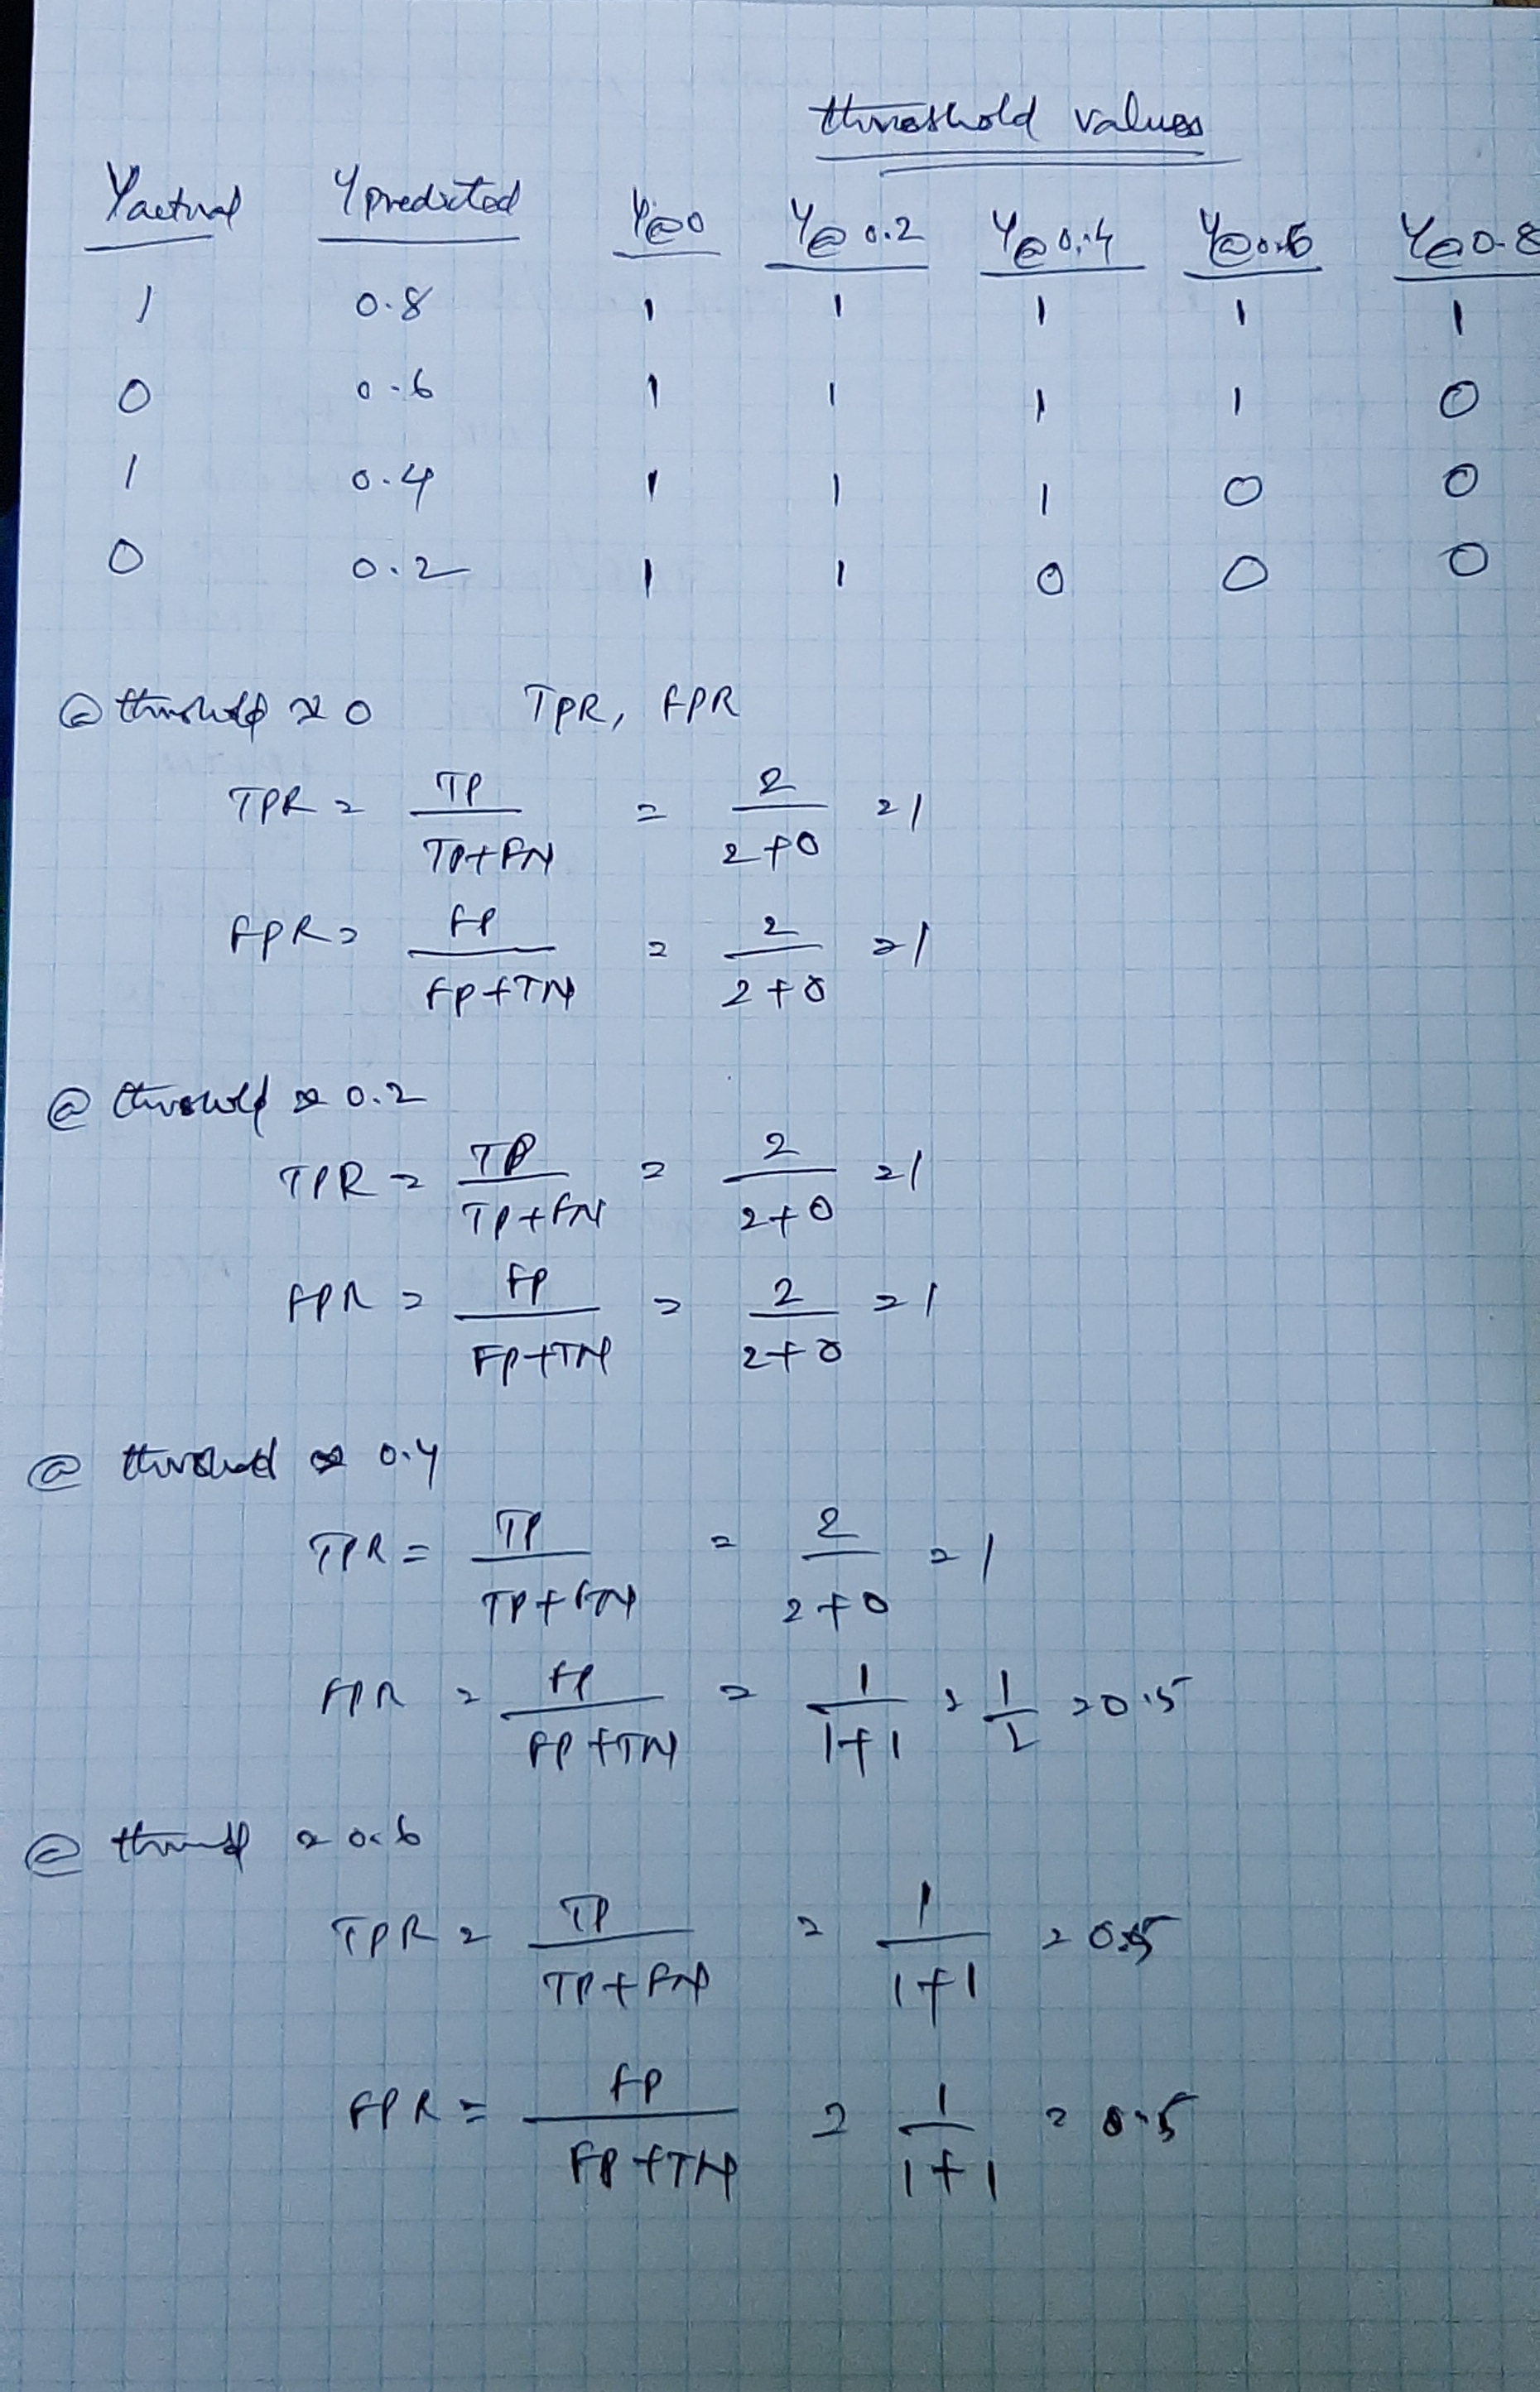 threshold values
Yactual Ypredicted Y@0 Y@0.2 Y@0.4 Y@0.6 Y@0.8
1 0.8 1 1 1 1 1
0 0.6 1 1 1 1 0
1 0.4 1 1 1 0 0
0 0.2 1 1 0 0 0
@ threshold = 0 TPR, FPR
TPR = TP / TP+FN = 2 / 2+0 = 1
FPR = FP / FP+TN = 2 / 2+0 = 1
@ threshold = 0.2
TPR = TP / TP+FN = 2 / 2+0 = 1
FPR = FP / FP+TN = 2 / 2+0 = 1
@ threshold = 0.4
TPR = TP / TP+FN = 2 / 2+0 = 1
FPR = FP / FP+TN = 1 / 1+1 = 1 / 2 = 0.5
@ threshold = 0.6
TPR = TP / TP+FN = 1 / 1+1 = 0.5
FPR = FP / FP+TN = 1 / 1+1 = 0.5